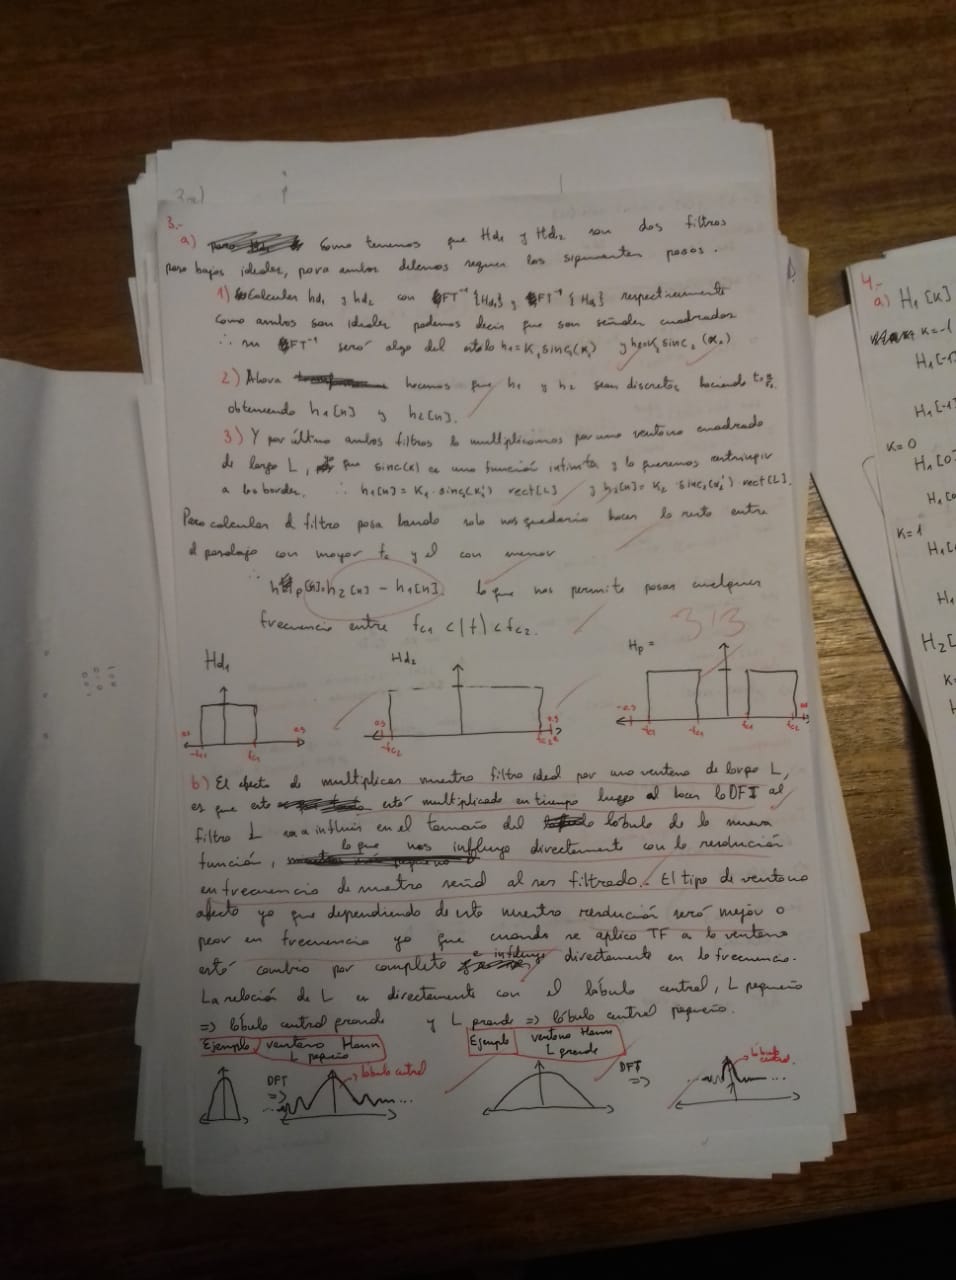 3.-
a) Como tenemos que Hd1 y Hd2 son dos filtros
paso bajos ideales, para ambos debemos seguir los siguientes pasos.
1) Calcular hd1 y hd2 con FT⁻¹{Hd1} y FT⁻¹{Hd2} respectivamente
Como ambos son ideales podemos decir que son señales cuadradas
∴ su FT⁻¹ será algo del estilo h1=K1 sinc1(x1) y h2=K2 sinc2(x2)
2) Ahora hacemos que h1 y h2 sean discretos haciendo
obteniendo h1[n] y h2[n].
3) Y por último ambos filtros lo multiplicamos por una ventana cuadrada
de largo L, que sinc(x) es una función infinita y la queremos restringir
a los bordes. ∴ h1[n] = K1·sinc1(x1') rect[L] y h2[n] = K2·sinc2(x2') rect[L].
Para calcular el filtro pasa banda solo nos quedaría hacer la resta entre
el pasabajo con mayor fc y el con menor
∴ hp[n]=h2[n] - h1[n] lo que nos permite pasar cualquier
frecuencia entre fc1 <|f|< fc2.
313
Hd1 Hd2 Hp =
-fc1 fc1 -fc2 fc2 -fc2 -fc1 fc1 fc2
b) El efecto de multiplicar nuestro filtro ideal por una ventana de largo L,
es que esto está multiplicado en tiempo luego al hacer la DFT al
filtro L va a influir en el tamaño del lóbulo de la nueva
función, lo que nos influye directamente con la resolución
en frecuencia de nuestra señal al ser filtrada. El tipo de ventana
afecta ya que dependiendo de esto nuestra resolución será mejor o
peor en frecuencia ya que cuando se aplica TF a la ventana
está cambia por completo e influye directamente en la frecuencia.
La relación de L es directamente con el lóbulo central, L pequeño
=> lóbulo central grande y L grande => lóbulo central pequeño.
Ejemplo ventana Hann L pequeño
Ejemplo ventana Hann L grande
DFT => lóbulo central
DFT => lóbulo central
4.-
a) H1[K]
K=-1
H1[-1
H1[-1
K=0
H1[0
H1[0
K=1
H1[
H1
H2[